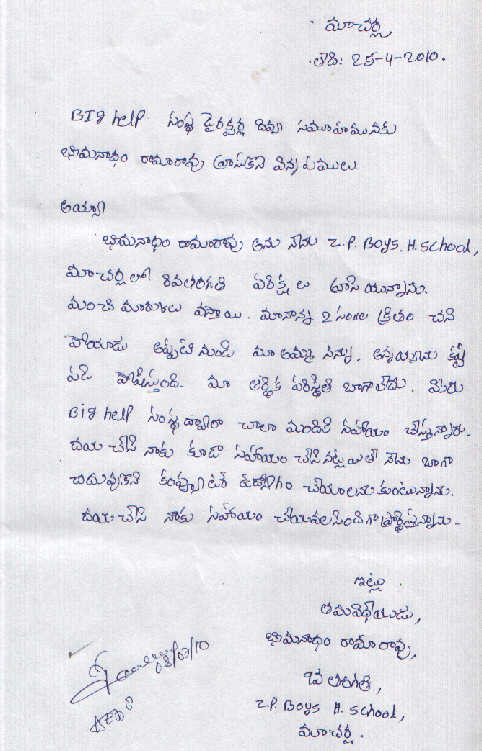 మాచర్ల,
తేది: 25-4-2010.
BIg help సంస్థ డైరెక్టర్ల దివ్య సముహమునకు
భామనాథం రామారావు వ్రాసుకొనె విన్నపములు
అయ్యా
భామనాథం రామారావు అను నేను Z.P. Boys. H. School,
మాచర్లలో 9వతరగతి పరిక్షలు వ్రాసి యున్నాను.
మంచి మార్కులు వస్తాయి. మానాన్న 2 సంలల క్రితం చని
పోయాడు అప్పటి నుండి మా అమ్మ నన్ను, అన్నయ్యను కష్ట
పడి పోషిస్తుంది. మా ఆర్థిక పరిస్థితి బాగాలేదు. మీరు
BIg help సంస్థ ద్వారా చాలా మందికి సహాయం చేస్తున్నారు.
దయ చేసి నాకు కూడా సహాయం చేసినట్లయితే నేను బాగా
చదువుకొని కంప్యూటర్ ఉద్యోగం చేయాలను కుంటున్నాను.
దయచేసి నాకు సహాయం చేయవలసిందిగా ప్రార్థిస్తున్నాను.
ఇట్లు
తమవిధేయుడు,
భామనాథం రామారావు,
9వ తరగతి,
Z.P. Boys H. School,
మాచర్ల.